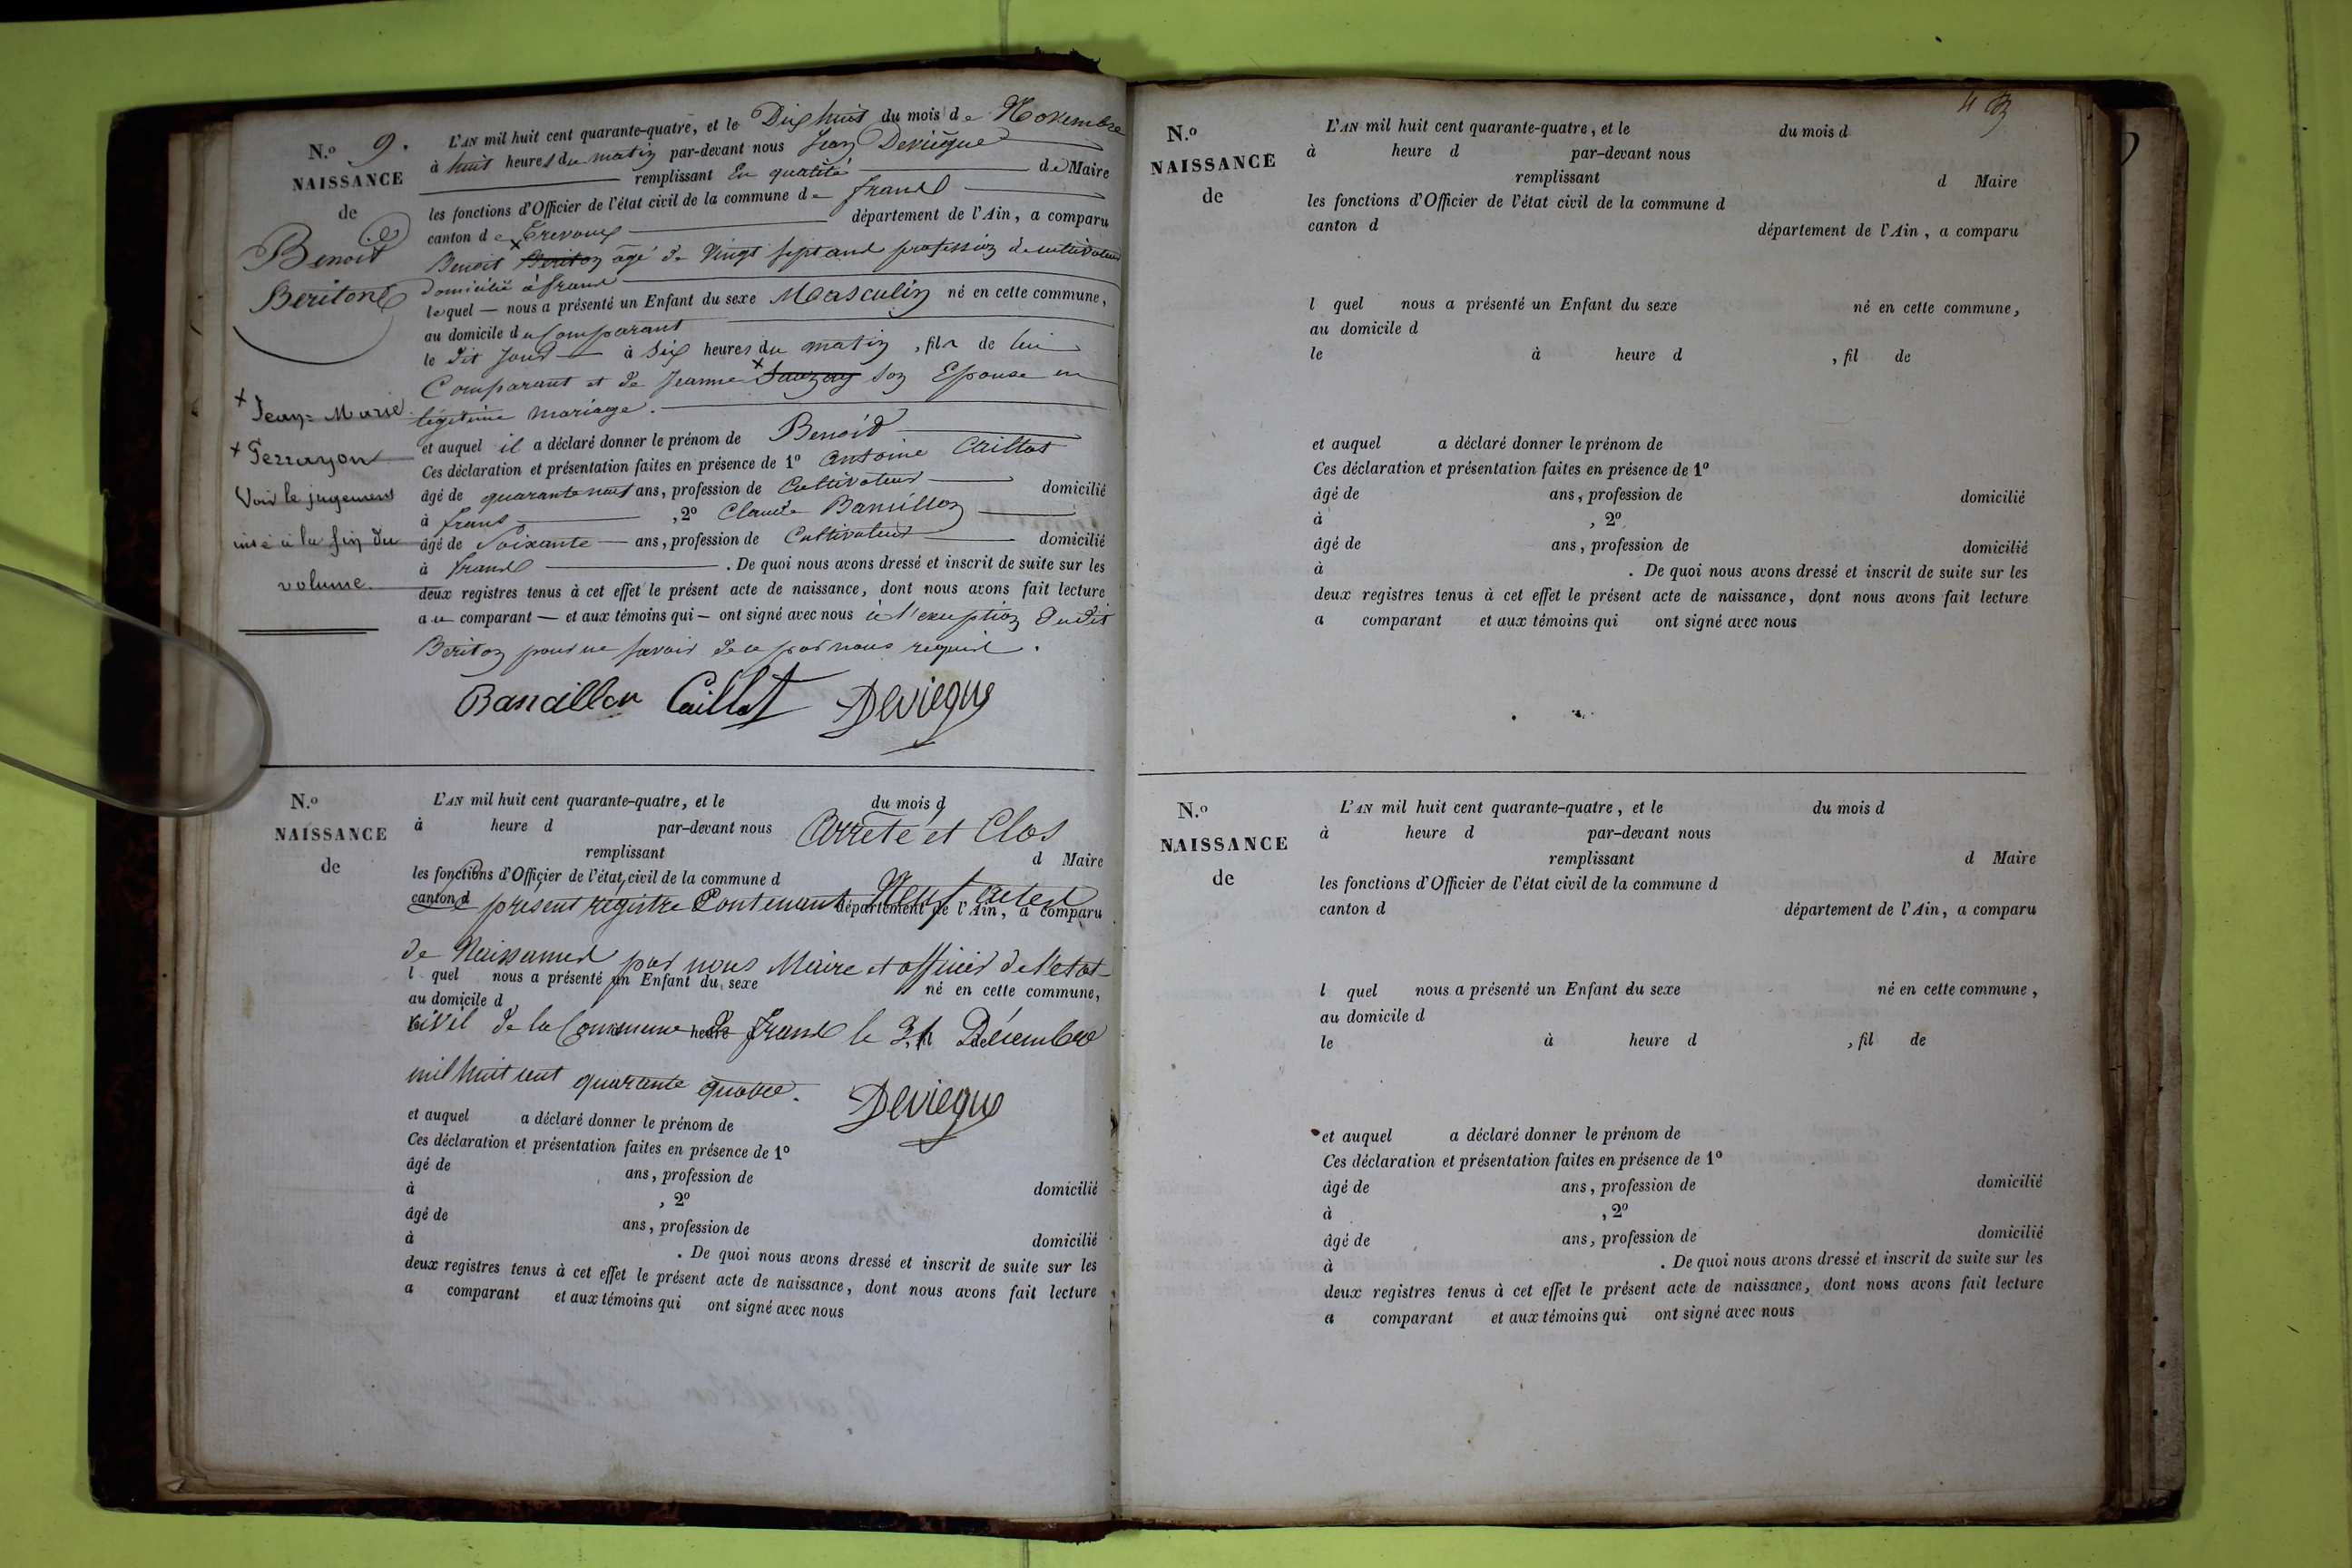 N.º 9.
NAISSANCE
de
Benoit
Beriton
+ Jean-Marie
+ Perrayon
Voir le jugement
mis à la fin du
volume.
L'AN mil huit cent quarante-quatre, et le Dix huit du mois de Novembre
à huit heures du matin par-devant nous Jean Deviegue
remplissant En qualité de Maire
les fonctions d'Officier de l'état civil de la commune de frans
canton de Trevoux département de l'Ain, a comparu
Benoit Beriton agé de Vingt sept ans profession de cultivateur
domicilié à frans
lequel — nous a présenté un Enfant du sexe Masculin né en cette commune,
au domicile du Comparant
le dit jour — à Six heures du matin, fils de lui
Comparant et de Jeanne Sauzay son Epouse en
légitime mariage.
et auquel il a déclaré donner le prénom de Benoid
Ces déclaration et présentation faites en présence de 1º Antoine Caillot
âgé de quarante ans, profession de Cultivateur domicilié
à frans, 2º Claude Bansillon
âgé de Soixante — ans, profession de Cultivateur domicilié
à frans. De quoi nous avons dressé et inscrit de suite sur les
deux registres tenus à cet effet le présent acte de naissance, dont nous avons fait lecture
au comparant — et aux témoins qui — ont signé avec nous à l'exception dudit
Beriton pour ne savoir de ce par nous requis.
Bansillon Caillot Deviegue
N.º
NAISSANCE
de
L'AN mil huit cent quarante-quatre, et le du mois d
à heure d par-devant nous
Arrêté et Clos
remplissant d Maire
les fonctions d'Officier de l'état civil de la commune d
Le présent registre Contenant Neuf actes
canton d département de l'Ain, a comparu
de Naissances par nous Maire et officier de l'etat
l quel nous a présenté un Enfant du sexe né en cette commune,
au domicile d
civil de la Commune de frans le 31 Décembre
heure
mil huit cent quarante quatre. Deviegue
et auquel a déclaré donner le prénom de
Ces déclaration et présentation faites en présence de 1º
âgé de ans, profession de domicilié
à , 2º
âgé de ans, profession de domicilié
à . De quoi nous avons dressé et inscrit de suite sur les
deux registres tenus à cet effet le présent acte de naissance, dont nous avons fait lecture
a comparant et aux témoins qui ont signé avec nous
N.º
NAISSANCE
de
L'AN mil huit cent quarante-quatre, et le du mois d
à heure d par-devant nous
remplissant d Maire
les fonctions d'Officier de l'état civil de la commune d
canton d département de l'Ain, a comparu
l quel nous a présenté un Enfant du sexe né en cette commune,
au domicile d
le à heure d , fil de
et auquel a déclaré donner le prénom de
Ces déclaration et présentation faites en présence de 1º
âgé de ans, profession de domicilié
à , 2º
âgé de ans, profession de domicilié
à . De quoi nous avons dressé et inscrit de suite sur les
deux registres tenus à cet effet le présent acte de naissance, dont nous avons fait lecture
a comparant et aux témoins qui ont signé avec nous
N.º
NAISSANCE
de
L'AN mil huit cent quarante-quatre, et le du mois d
à heure d par-devant nous
remplissant d Maire
les fonctions d'Officier de l'état civil de la commune d
canton d département de l'Ain, a comparu
l quel nous a présenté un Enfant du sexe né en cette commune,
au domicile d
le à heure d , fil de
et auquel a déclaré donner le prénom de
Ces déclaration et présentation faites en présence de 1º
âgé de ans, profession de domicilié
à , 2º
âgé de ans, profession de domicilié
à . De quoi nous avons dressé et inscrit de suite sur les
deux registres tenus à cet effet le présent acte de naissance, dont nous avons fait lecture
a comparant et aux témoins qui ont signé avec nous